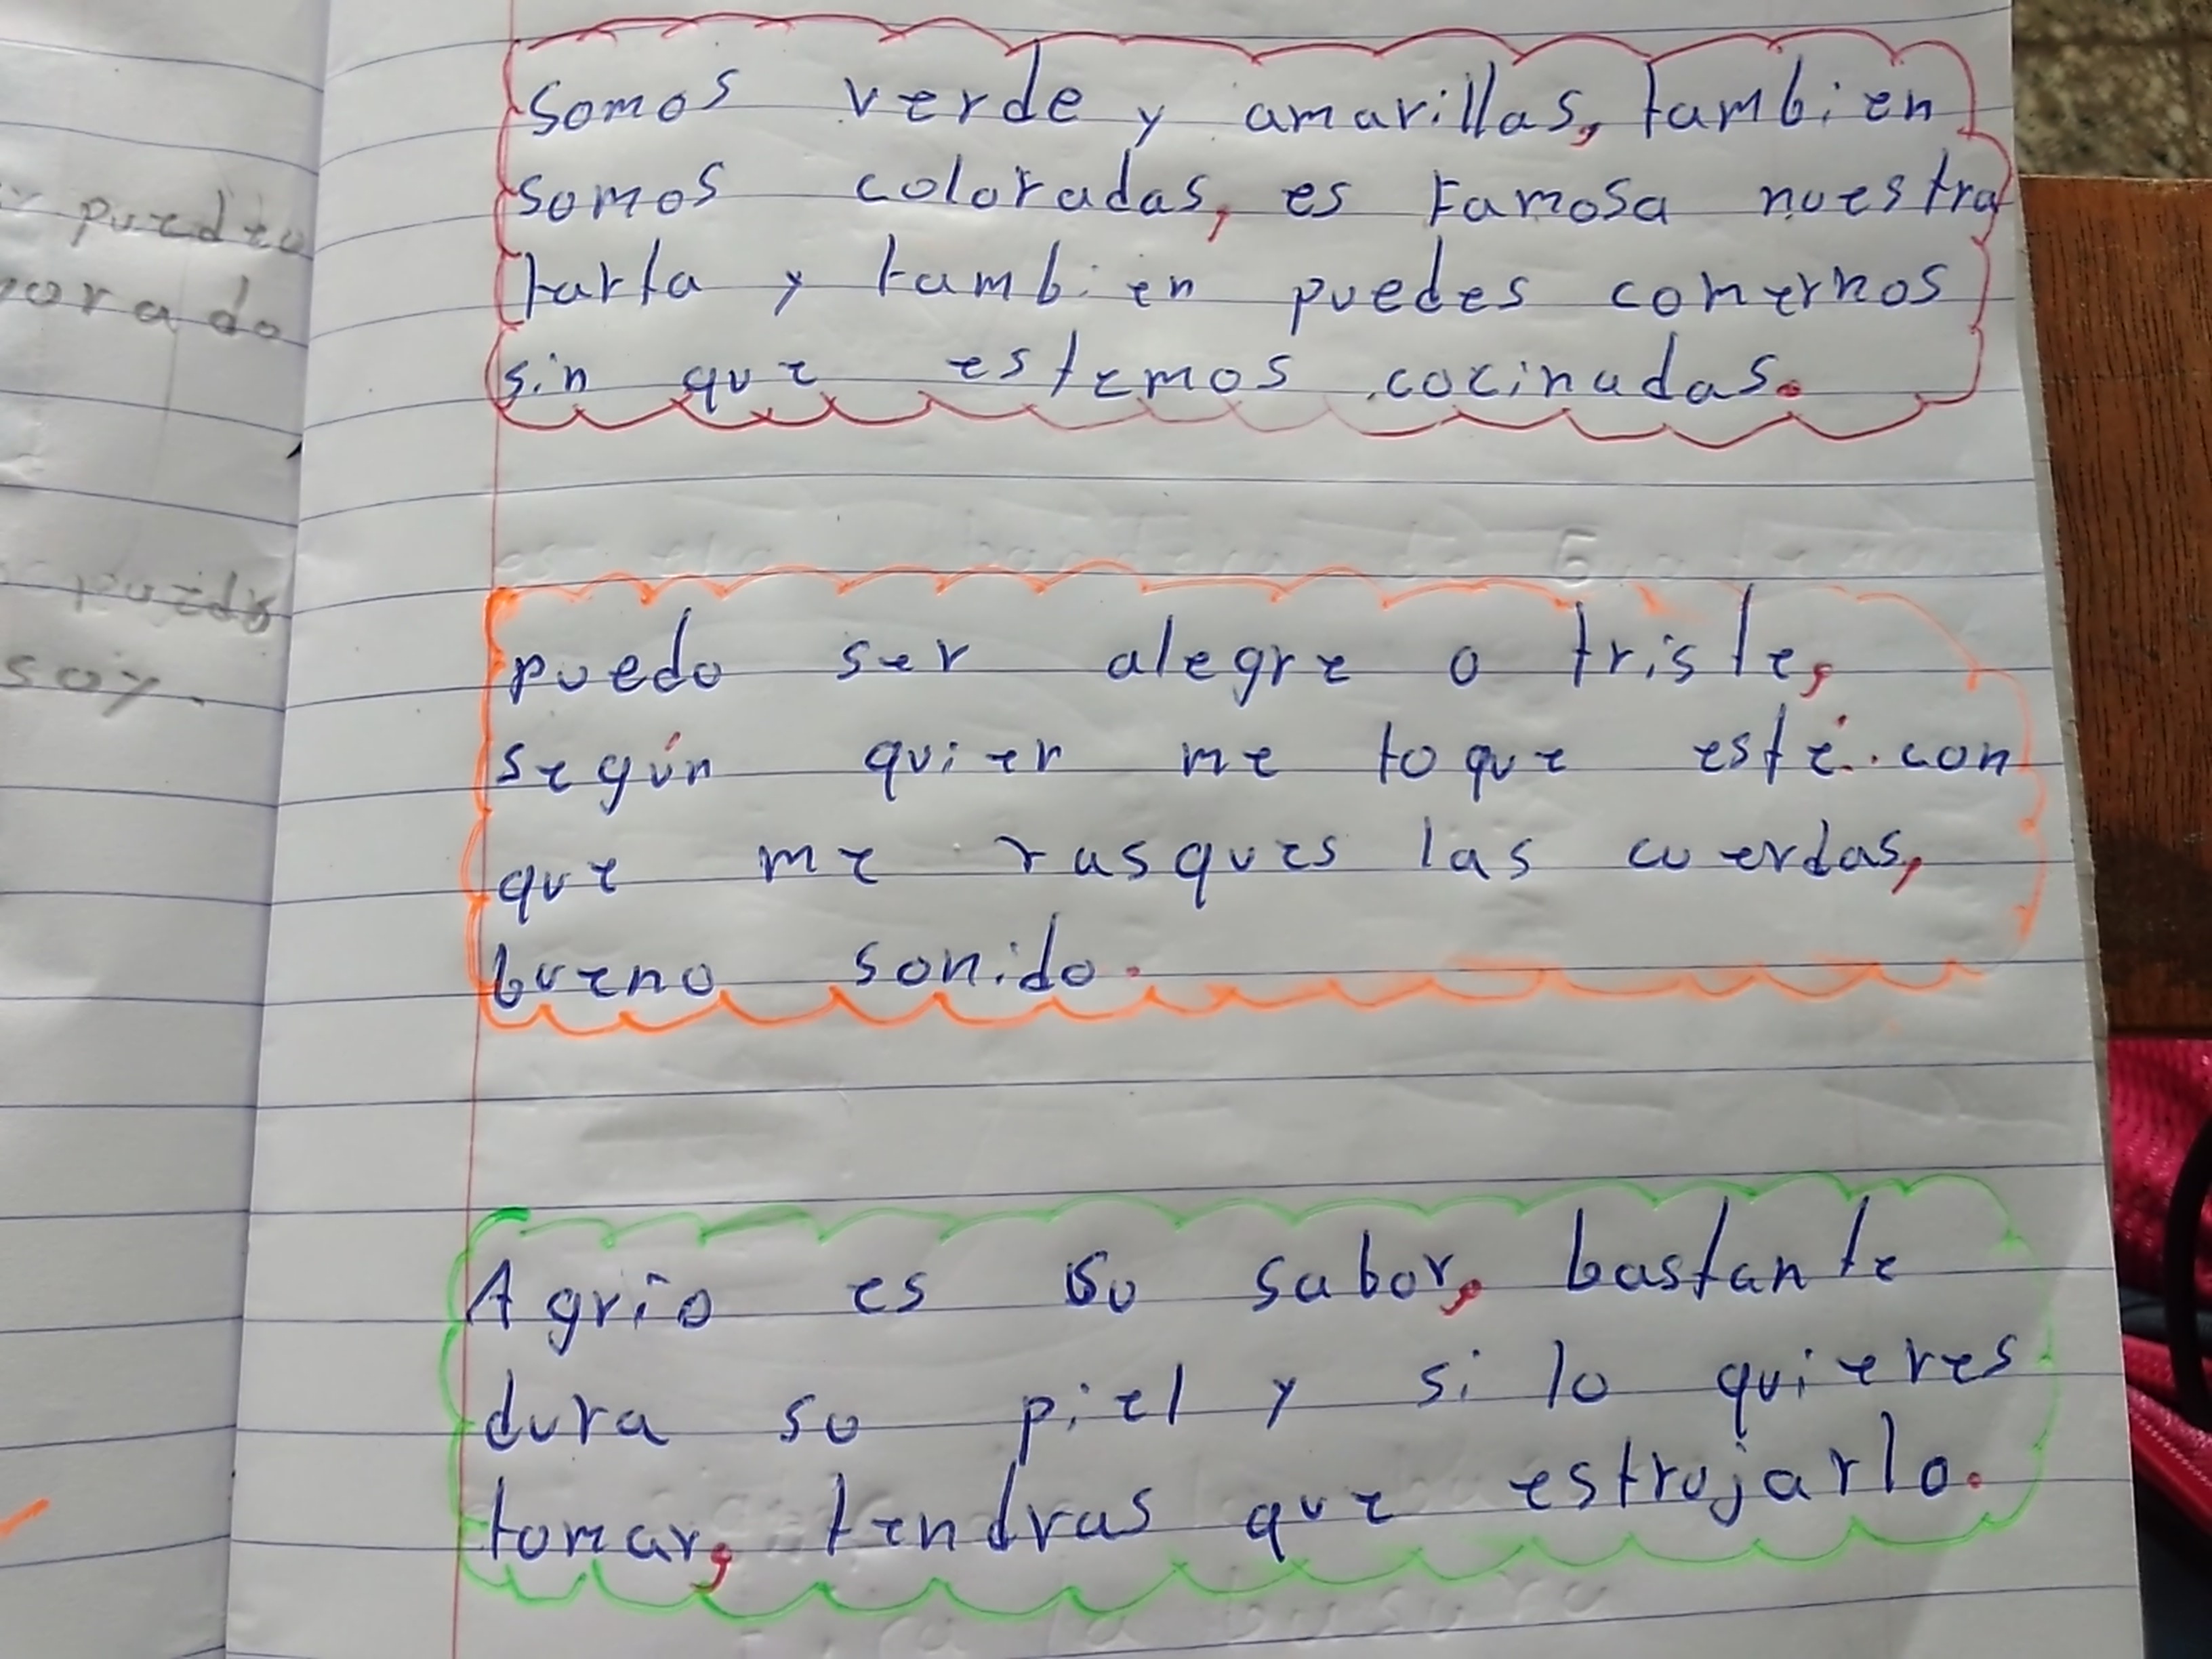 puedeo
morado
puedo
soy.
Somos verde y amarillas, tambien
somos coloradas, es Famosa nuestra
tarta y tambien puedes comernos
sin que estemos cocinadas.
puedo ser alegre o triste,
según quien me toque esté con
que me rasques las cuerdas,
bueno sonido.
Agrio es su sabor, bastante
dura su piel y si lo quieres
tomar, tendras que estrujarlo.